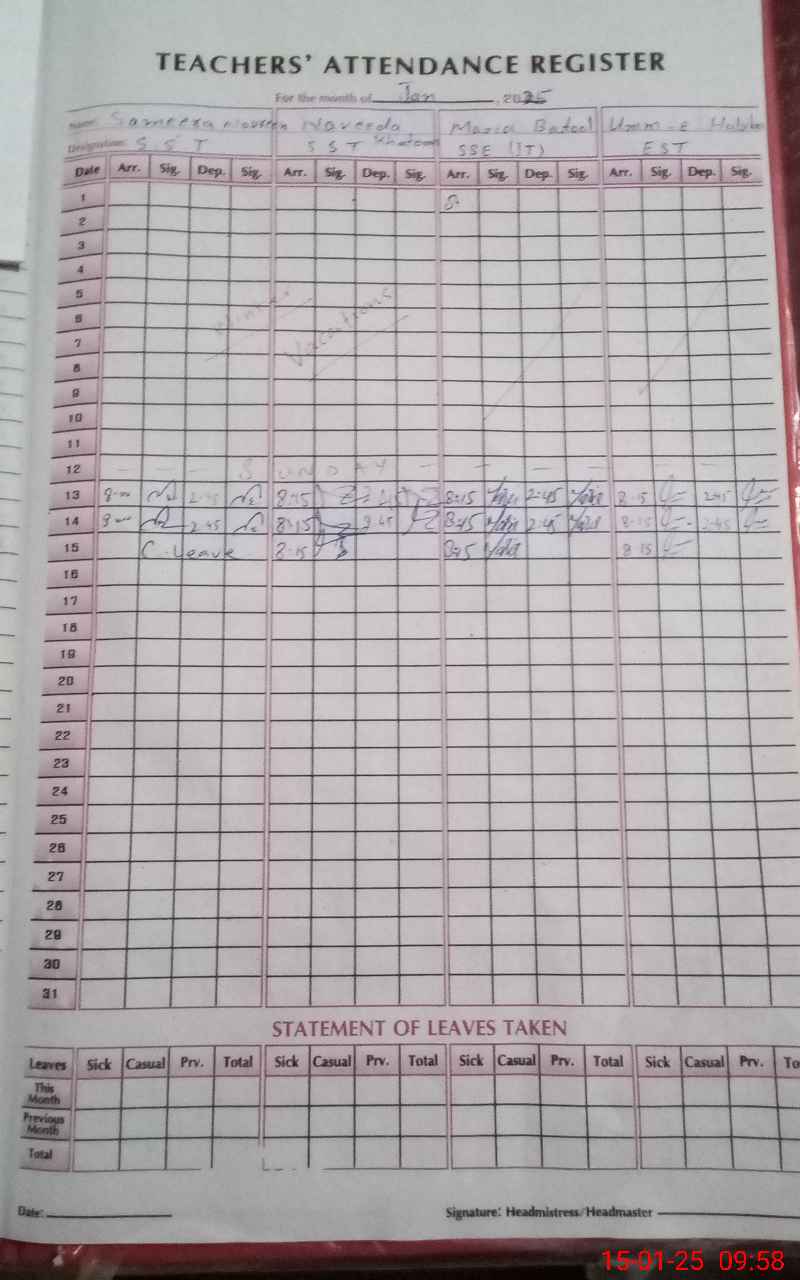 TEACHERS' ATTENDANCE REGISTER
For the month of Jan, 2025
Name: Sameera Noureen Naveeda Khatoon Maria Batool Umm-E
Designation: S.S.T SST SSE (IT) EST
Date Arr. Sig. Dep. Sig. Arr. Sig. Dep. Sig. Arr. Sig. Dep. Sig. Arr. Sig. Dep. Sig.
1
2
3
4
5
6
7
8
9
10
11
Winter
Vacations
12 — — — SUNDAY — — — — — —
13 8-00 2-45 8:15 2:45 8:15 2:45 8-15 2:45
14 8-00 2-45 8:15 2:45 8:15 2:45 8-15 2-45
15 C. Leave 8-15 8:15 8-15
16
17
18
19
20
21
22
23
24
25
26
27
28
29
30
31
STATEMENT OF LEAVES TAKEN
Leaves Sick Casual Prv. Total Sick Casual Prv. Total Sick Casual Prv. Total Sick Casual Prv. To
This Month
Previous Month
Total
Date: Signature: Headmistress/Headmaster
15-01-25 09:58